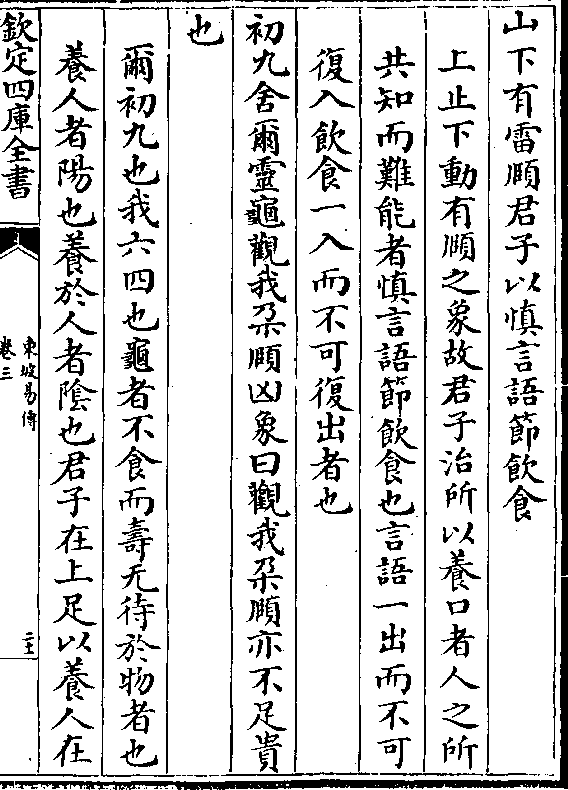 山下有雷頤君子以慎言語節飲食
上止下動有頤之象故君子治所以養口者人之所
共知而難能者慎言語節飲食也言語一出而不可
復入飲食一入而不可復出者也
初九舍爾靈龜觀我朶頤凶象曰觀我朶頤亦不足貴
也
爾初九也我六四也龜者不食而壽无待於物者也
養人者陽也養於人者陰也君子在上足以養人在
欽定四庫全書
東坡易傳
卷三